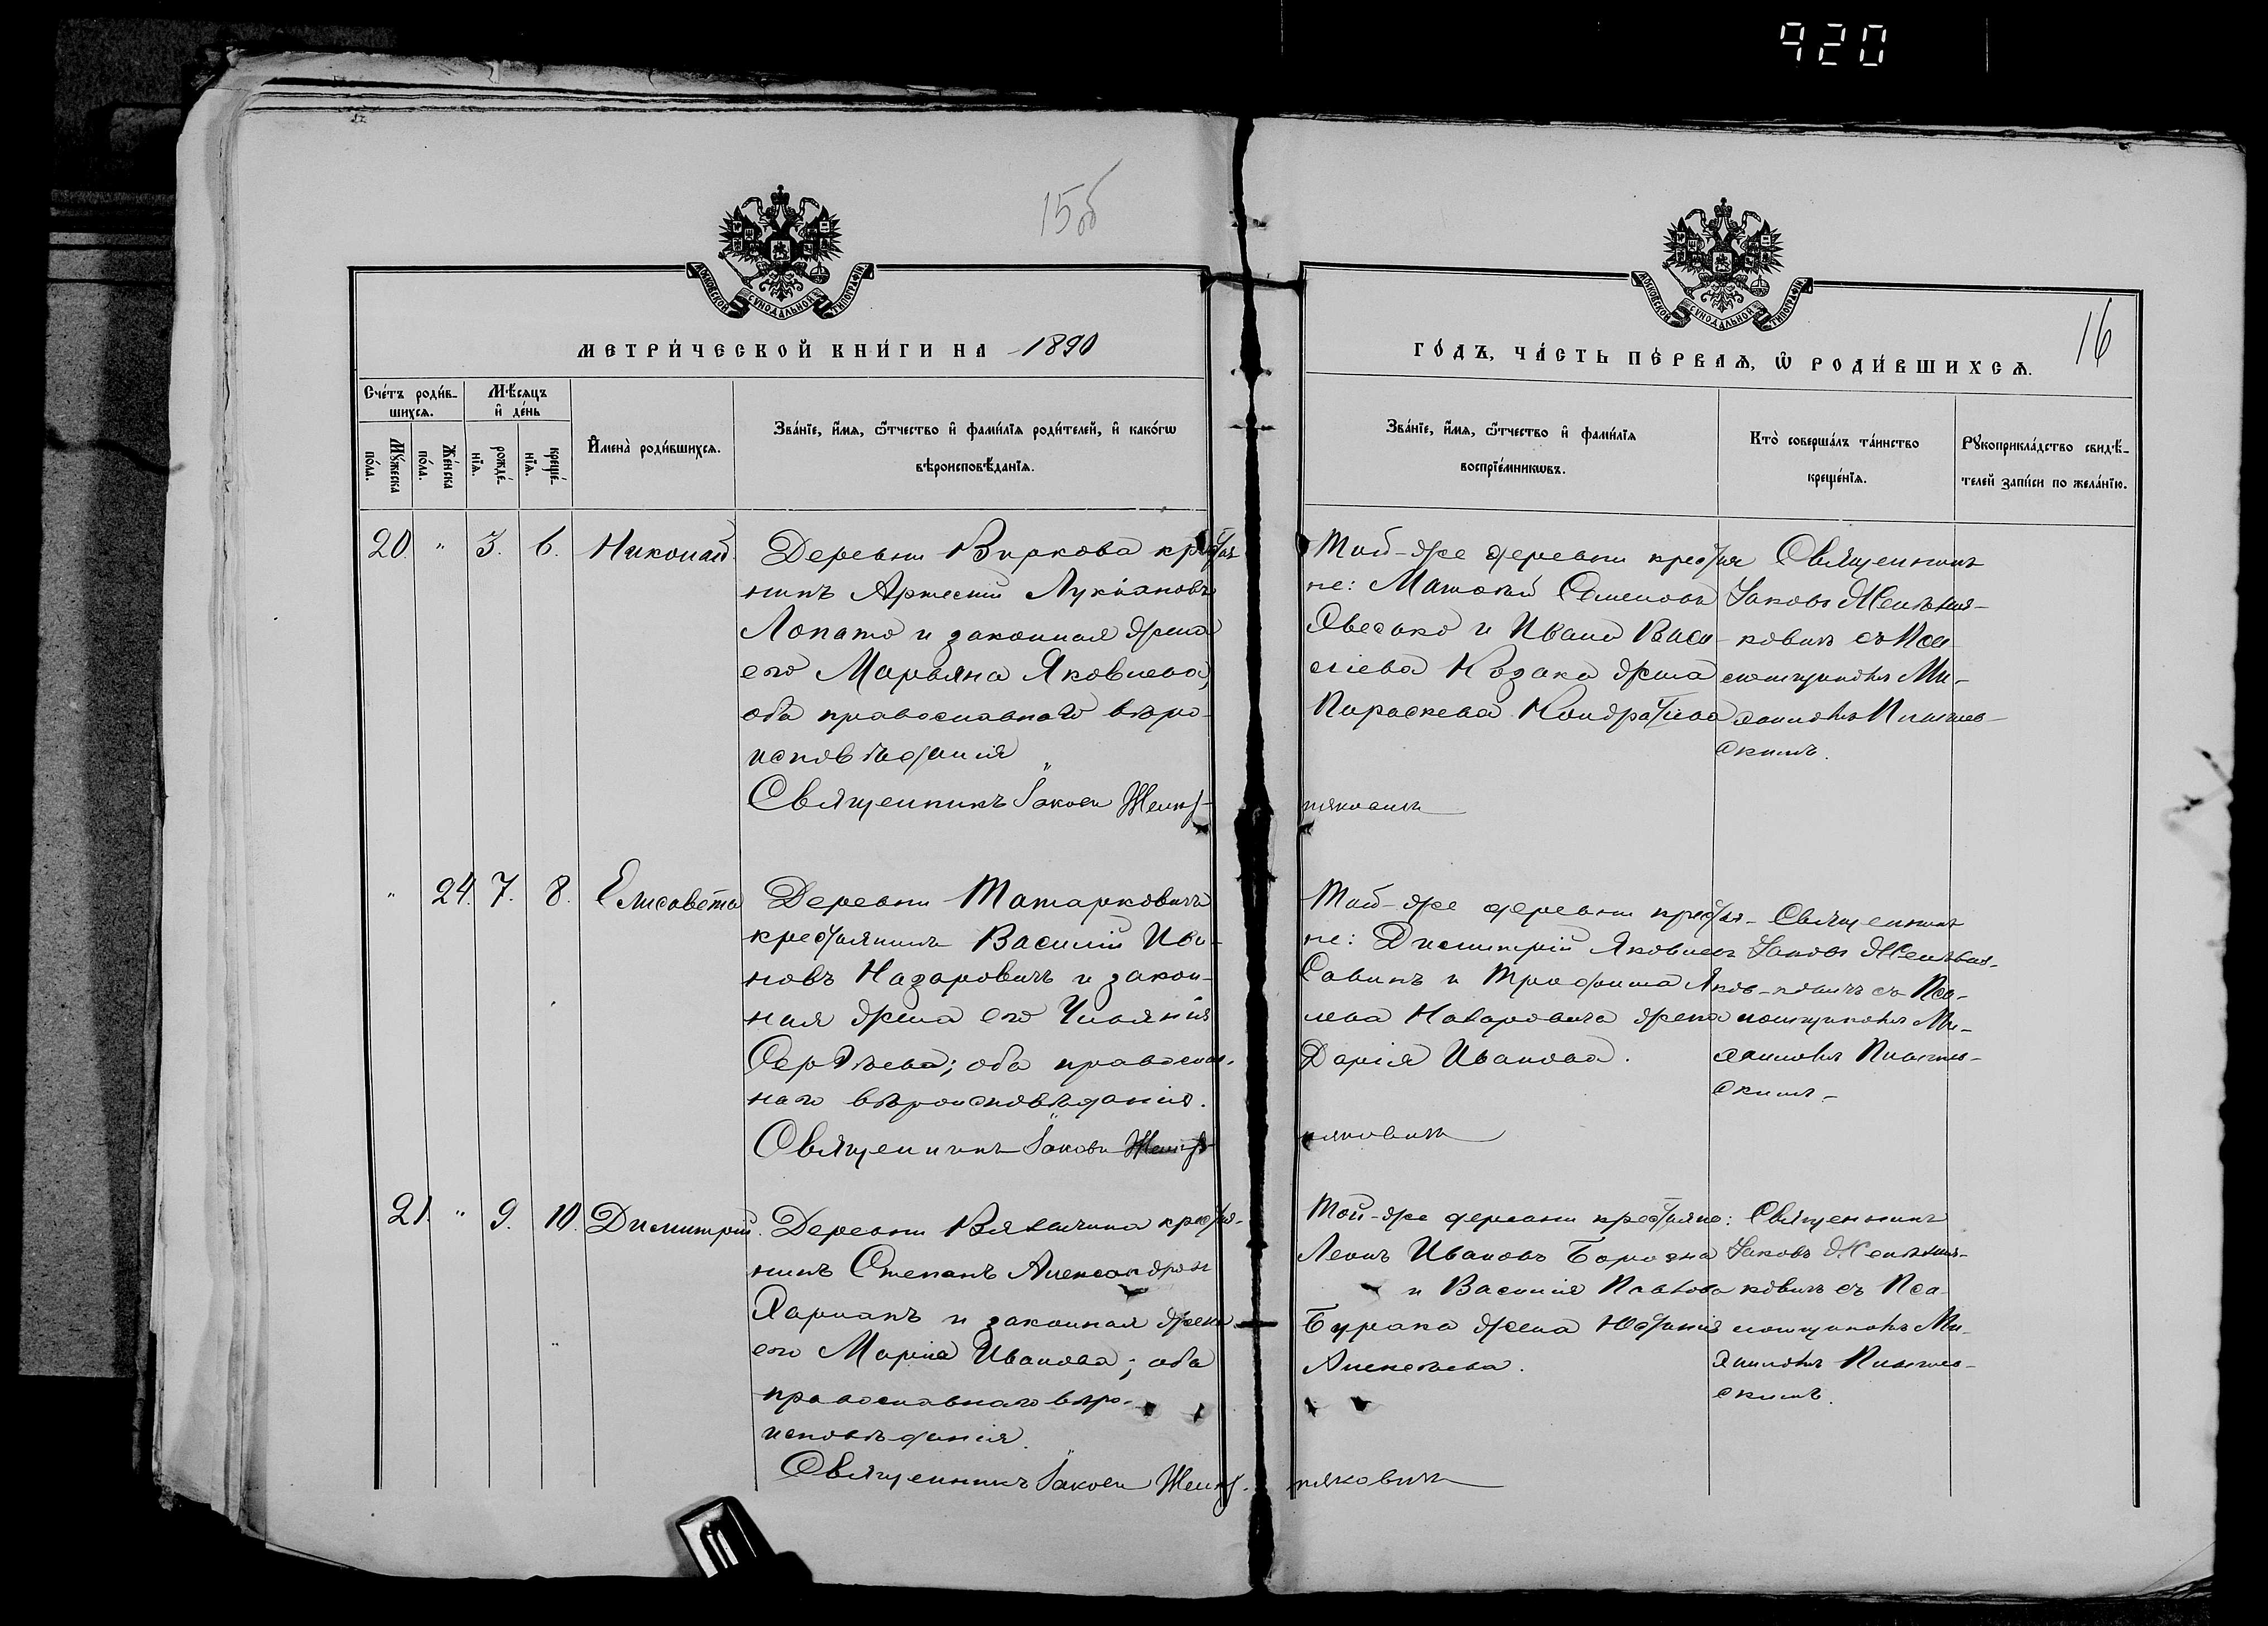 920
15об
МОСКОВСКОЙ СУНОДАЛЬНОЙ ТИПОГРАФІИ
МЕТРИ́ЧЕСКОЙ КНИ́ГИ НА 1890
Сче́тъ роди́в-
шихсѧ.
Мꙋ́жеска
по́ла.
Же́нска
по́ла.
Мѣ́сѧцъ
и҆ де́нь
рожде́-
нїѧ.
креще́-
нїѧ.
И҆мена̀ роди́вшихсѧ.
Зва́нїе, и҆́мѧ, ѻ҆́тчество и҆ фами́лїѧ роди́телей, и҆ како́гѡ
вѣроисповѣ́данїѧ.
20. " 3. 6. Николай.
Деревни Виркова крестья
нинъ Артемій Лукіановъ
Лопато и законная жена
его Марьяна Яковлева,
оба православнаго вѣро-
исповѣданія
Священникъ Іаковъ
" 24. 7. 8. Елисавета
Деревни Татарковичъ
крестьянинъ Василій Ива-
новъ Назаровичъ и закон-
ная жена его Ульянія
Сергѣева; оба православ-
наго вѣроисповѣданія.
Священникъ Іаковъ
21. " 9. 10. Димитрій.
Деревни крестья-
нинъ Степанъ Александровъ
Харланъ и законная жена
его Марія Иванова; оба
православнаго вѣро-
исповѣданія.
Священникъ Іаковъ
МОСКОВСКОЙ СУНОДАЛЬНОЙ ТИПОГРАФІИ
16
ГО́ДЪ, ЧА́СТЬ ПЕ́РВАѦ, Ѡ҆ РОДИ́ВШИХСѦ.
Зва́нїе, и҆́мѧ, ѻ҆́тчество и҆ фами́лїѧ
воспрїе́мникѡвъ.
Кто̀ соверша́лъ та́инство
креще́нїѧ.
Рꙋкоприкла́дство свидѣ́-
телей за́писи по жела́нїю.
Той-же деревни крестья
не: Матвѣй Семеновъ
и Ивана Васи-
лієва Козака жена
Параскева Кондратіева
Священникъ
Іаковъ
ковичъ съ Пса-
ломщикомъ Ми-
хаиломъ
скимъ.
Той-же деревни крестья-
не: Димитрій Яковлевъ
Савинъ и Трофима Яков-
лева Назаровича жена
Дарія Иванова.
Священникъ
Іаковъ
ковичъ съ Пса-
ломщикомъ Ми-
хаиломъ
скимъ.
Той-же деревни крестьяне:
Леонъ Ивановъ Борозна
и Василія Павлова
Бурака жена Юстинія
Алексѣева.
Священникъ
Іаковъ
ковичъ съ Пса-
ломщикомъ Ми-
хаиломъ
скимъ.